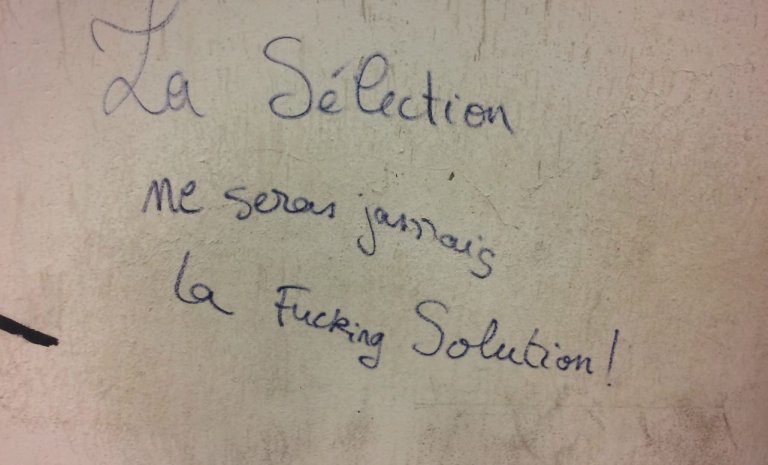 La Sélection
ne seras jamais
la Fucking Solution!